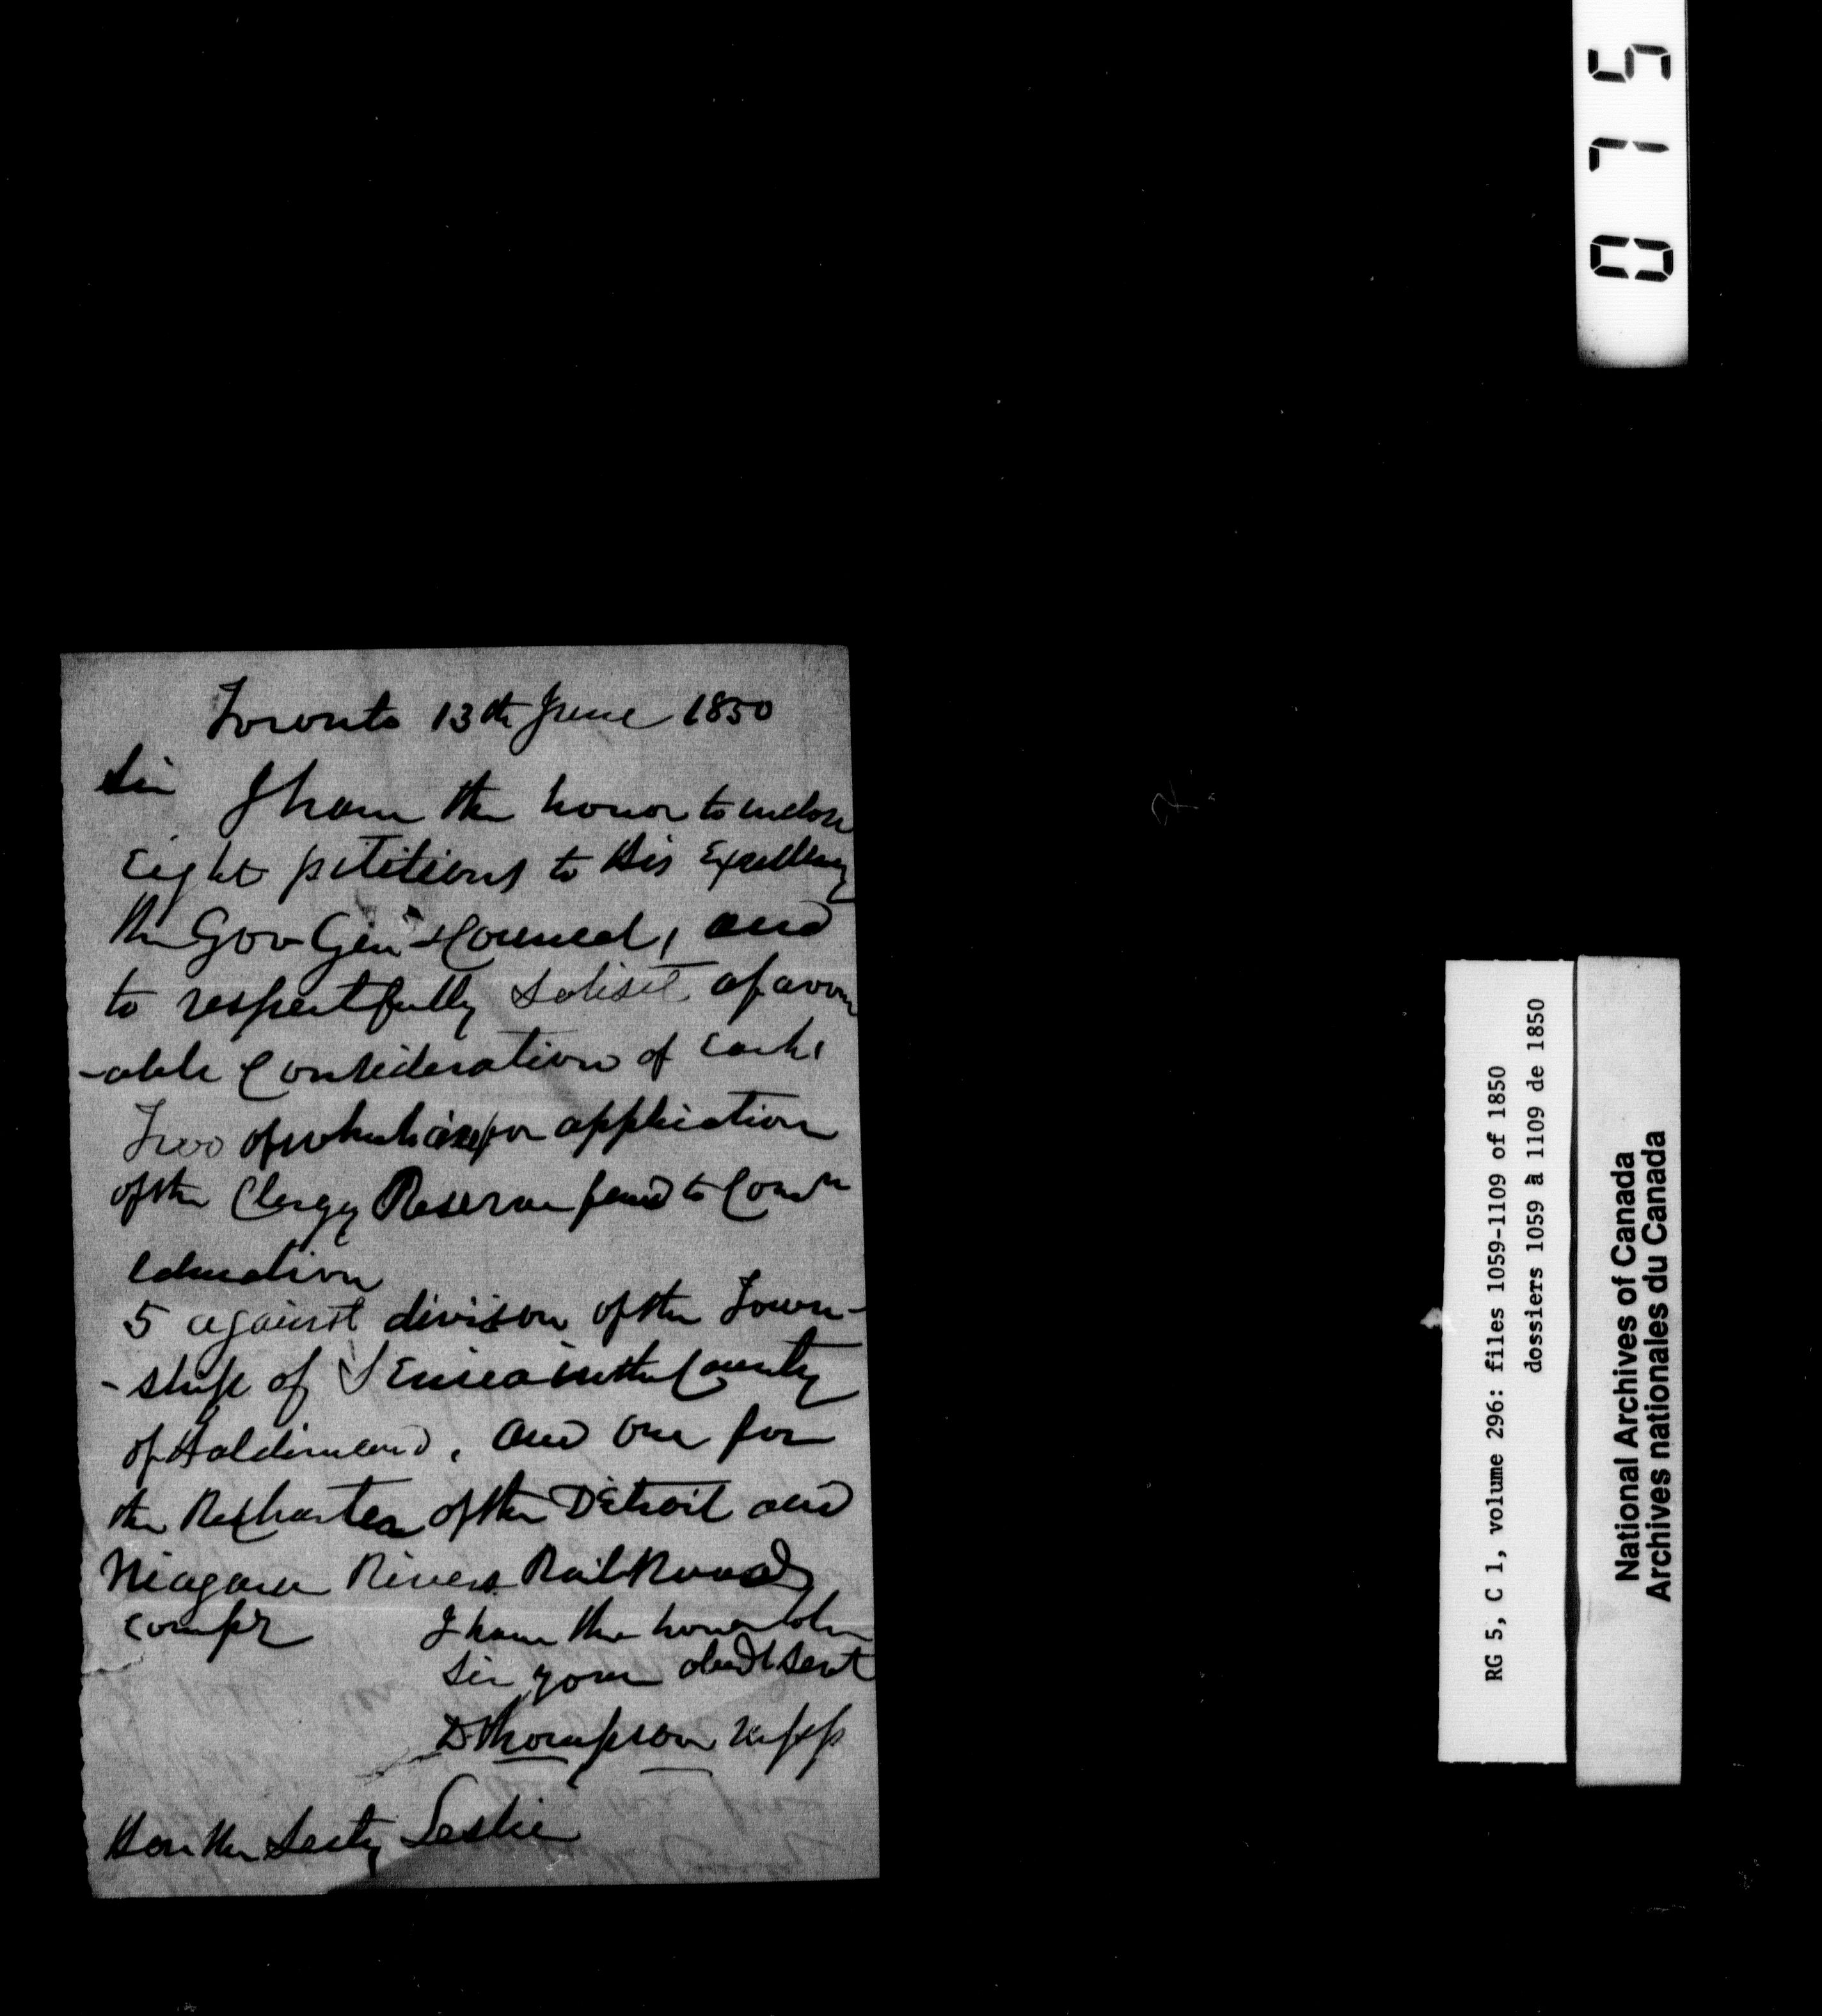 Toronto 13th June 1850
Sir I have the honor to inclose
Eight petitions to His Excellency
the Gov Gen & Council, and
to respectfully solisit a favour
-able Consideration of Each,
Two of which are for application
of the Clergy Reserve fund to
education
5 against divison of the Town-
-ship of Seneca in the County
of Haldimand, and one for
the Recharter of the Detroit and
Niagara Rivers Rail Road
Compy
I have the honor to be
Sir your obedt Servt
D Thompson MPP
Hon the Secty Leslie
0 7 5
RG 5, C 1, volume 296: files 1059-1109 of 1850
dossiers 1059 à 1109 de 1850
National Archives of Canada
Archives nationales du Canada